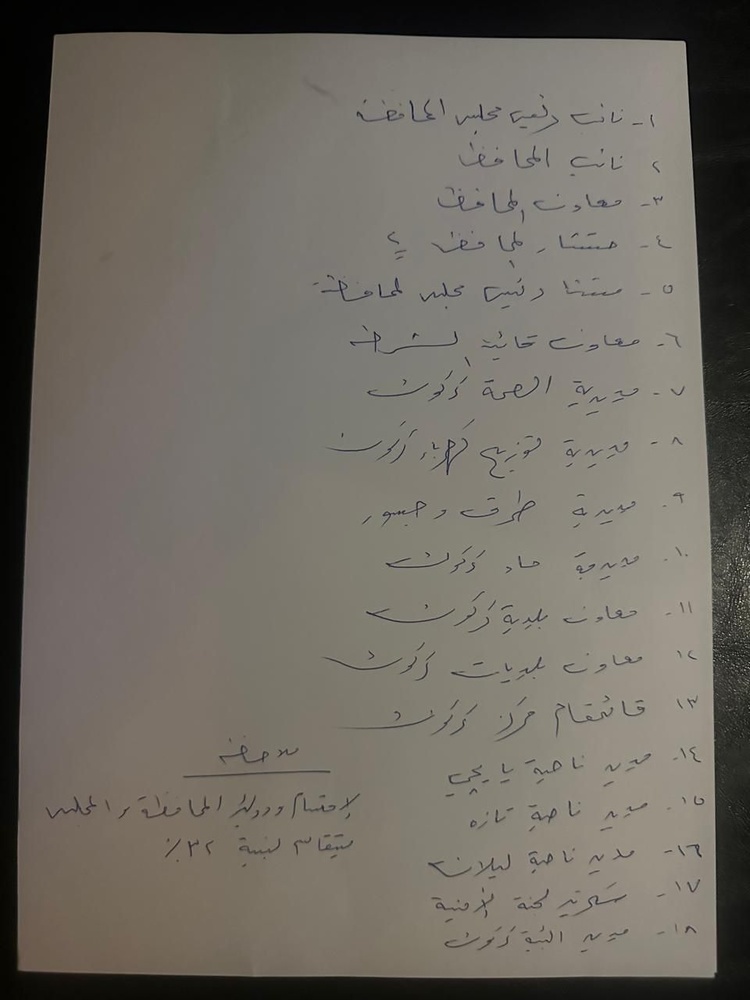 ١- نائب رئيس مجلس المحافظة
٢ نائب المحافظ
٣- معاون المحافظ
٤- مستشار المحافظ
٥- رئيس مجلس المحافظة
٦- معاون الشرطه
٧- مديرية الصحة كركوك
٨- مديرية توزيع كهرباء كركوك
٩- مديرية طرق وجسور
١٠- مديرية ماء كركوك
١١- معاون بلدية كركوك
١٢- معاون بلديات كركوك
١٣- قائمقام مركز كركوك
١٤- مدير ناحية يايجي
١٥- مدير ناحية تازه
١٦- مدير ناحية ليلان
١٧- لجنة الأمنية
١٨- مدير كركوك
ملاحظه
المحافظة والمجلس
بنسبة ٣٢٪